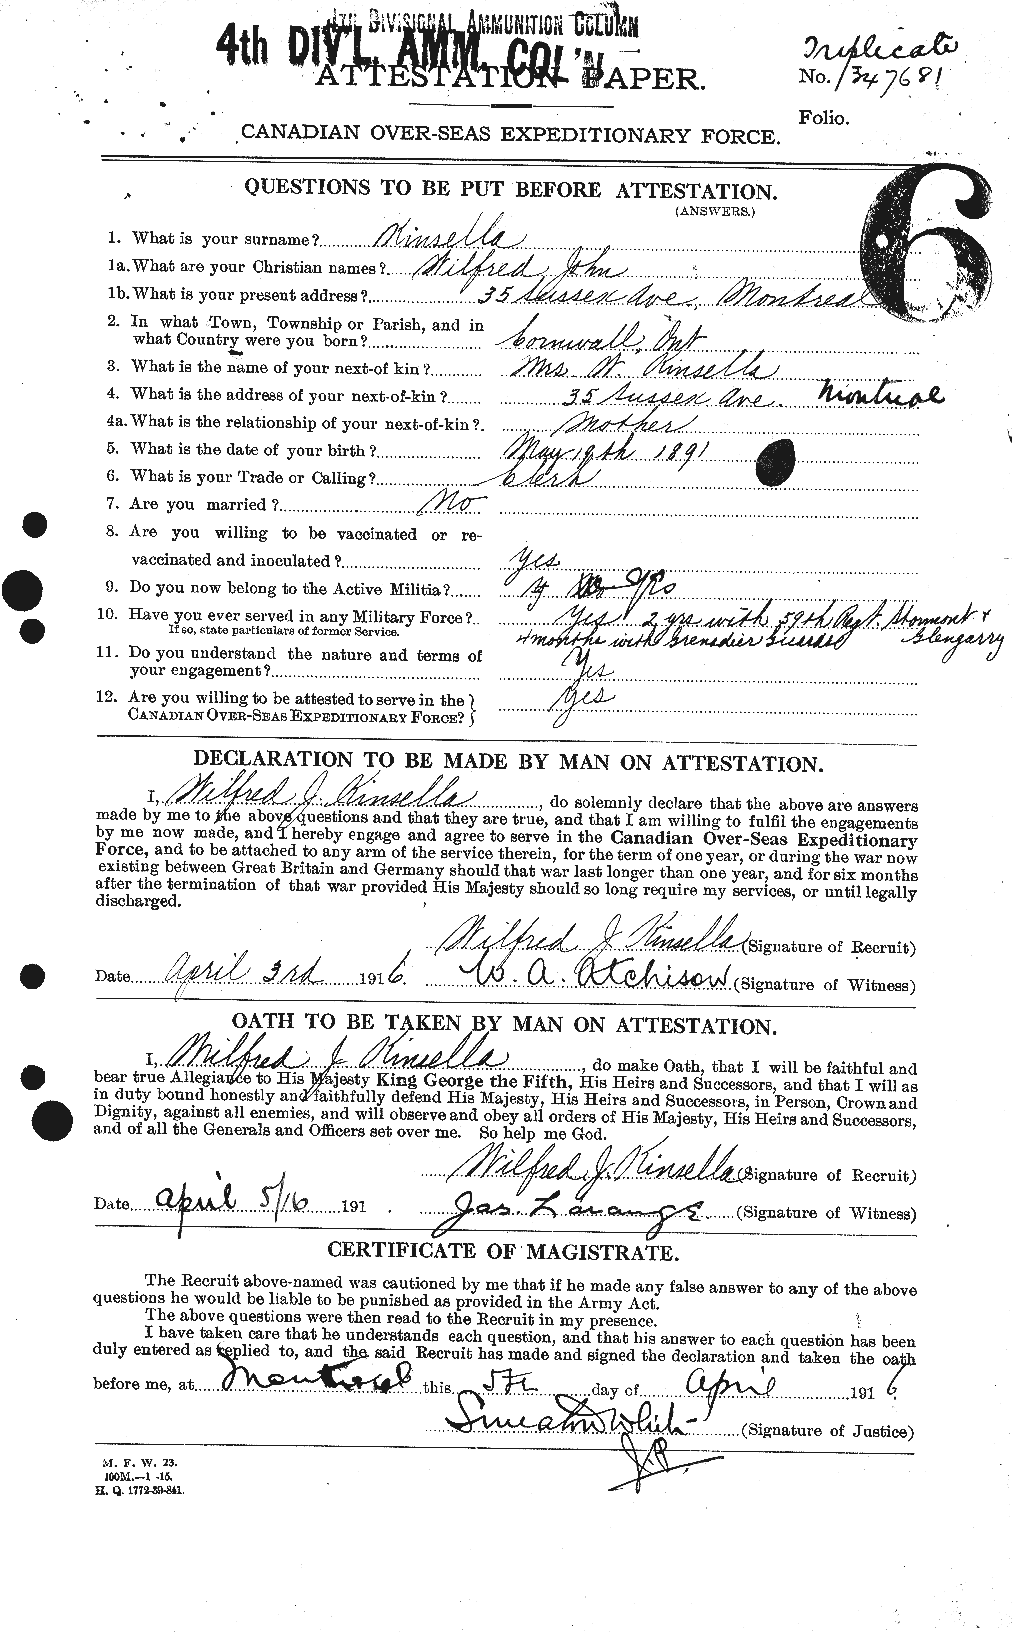 4TH DIVISIONAL AMMUNITION COLUMN
4th DIV'L. AMM. COL'N
Triplicate
ATTESTATION PAPER.
No. 1347681
Folio.
CANADIAN OVER-SEAS EXPEDITIONARY FORCE.
6
QUESTIONS TO BE PUT BEFORE ATTESTATION.
(ANSWERS.)
1. What is your surname? Kinsella
1a. What are your Christian names? Wilfred John
1b. What is your present address? 35 Sussex Ave, Montreal
2. In what Town, Township or Parish, and in
what Country were you born? Cornwall, Ont
3. What is the name of your next-of kin? Mrs. W. Kinsella
4. What is the address of your next-of-kin? 35 Sussex Ave. Montreal
4a. What is the relationship of your next-of-kin? Mother
5. What is the date of your birth? May 19th 1891
6. What is your Trade or Calling? Clerk
7. Are you married? No
8. Are you willing to be vaccinated or re-
vaccinated and inoculated? Yes
9. Do you now belong to the Active Militia?
10. Have you ever served in any Military Force? Yes 2 yrs with 59th Regt. Stormont &
If so, state particulars of former Service. 4 months with Grenadier Guards Glengarry
11. Do you understand the nature and terms of
your engagement? Yes
12. Are you willing to be attested to serve in the
CANADIAN OVER-SEAS EXPEDITIONARY FORCE? Yes
DECLARATION TO BE MADE BY MAN ON ATTESTATION.
I, Wilfred J. Kinsella, do solemnly declare that the above are answers
made by me to the above questions and that they are true, and that I am willing to fulfil the engagements
by me now made, and I hereby engage and agree to serve in the Canadian Over-Seas Expeditionary
Force, and to be attached to any arm of the service therein, for the term of one year, or during the war now
existing between Great Britain and Germany should that war last longer than one year, and for six months
after the termination of that war provided His Majesty should so long require my services, or until legally
discharged.
Wilfred J Kinsella (Signature of Recruit)
Date April 3rd 1916 W. A. Atchison (Signature of Witness)
OATH TO BE TAKEN BY MAN ON ATTESTATION.
I, Wilfred J Kinsella, do make Oath, that I will be faithful and
bear true Allegiance to His Majesty King George the Fifth, His Heirs and Successors, and that I will as
in duty bound honestly and faithfully defend His Majesty, His Heirs and Successors, in Person, Crown and
Dignity, against all enemies, and will observe and obey all orders of His Majesty, His Heirs and Successors,
and of all the Generals and Officers set over me. So help me God.
Wilfred J. Kinsella (Signature of Recruit)
Date April 5/16 191 . Jas. (Signature of Witness)
CERTIFICATE OF MAGISTRATE.
The Recruit above-named was cautioned by me that if he made any false answer to any of the above
questions he would be liable to be punished as provided in the Army Act.
The above questions were then read to the Recruit in my presence.
I have taken care that he understands each question, and that his answer to each question has been
duly entered as replied to, and the said Recruit has made and signed the declaration and taken the oath
before me, at Montreal this 5th day of April 1916
Smeaton White (Signature of Justice)
J.P.
M. F. W. 23.
100M.—1-15.
H. Q. 1772-39-841.